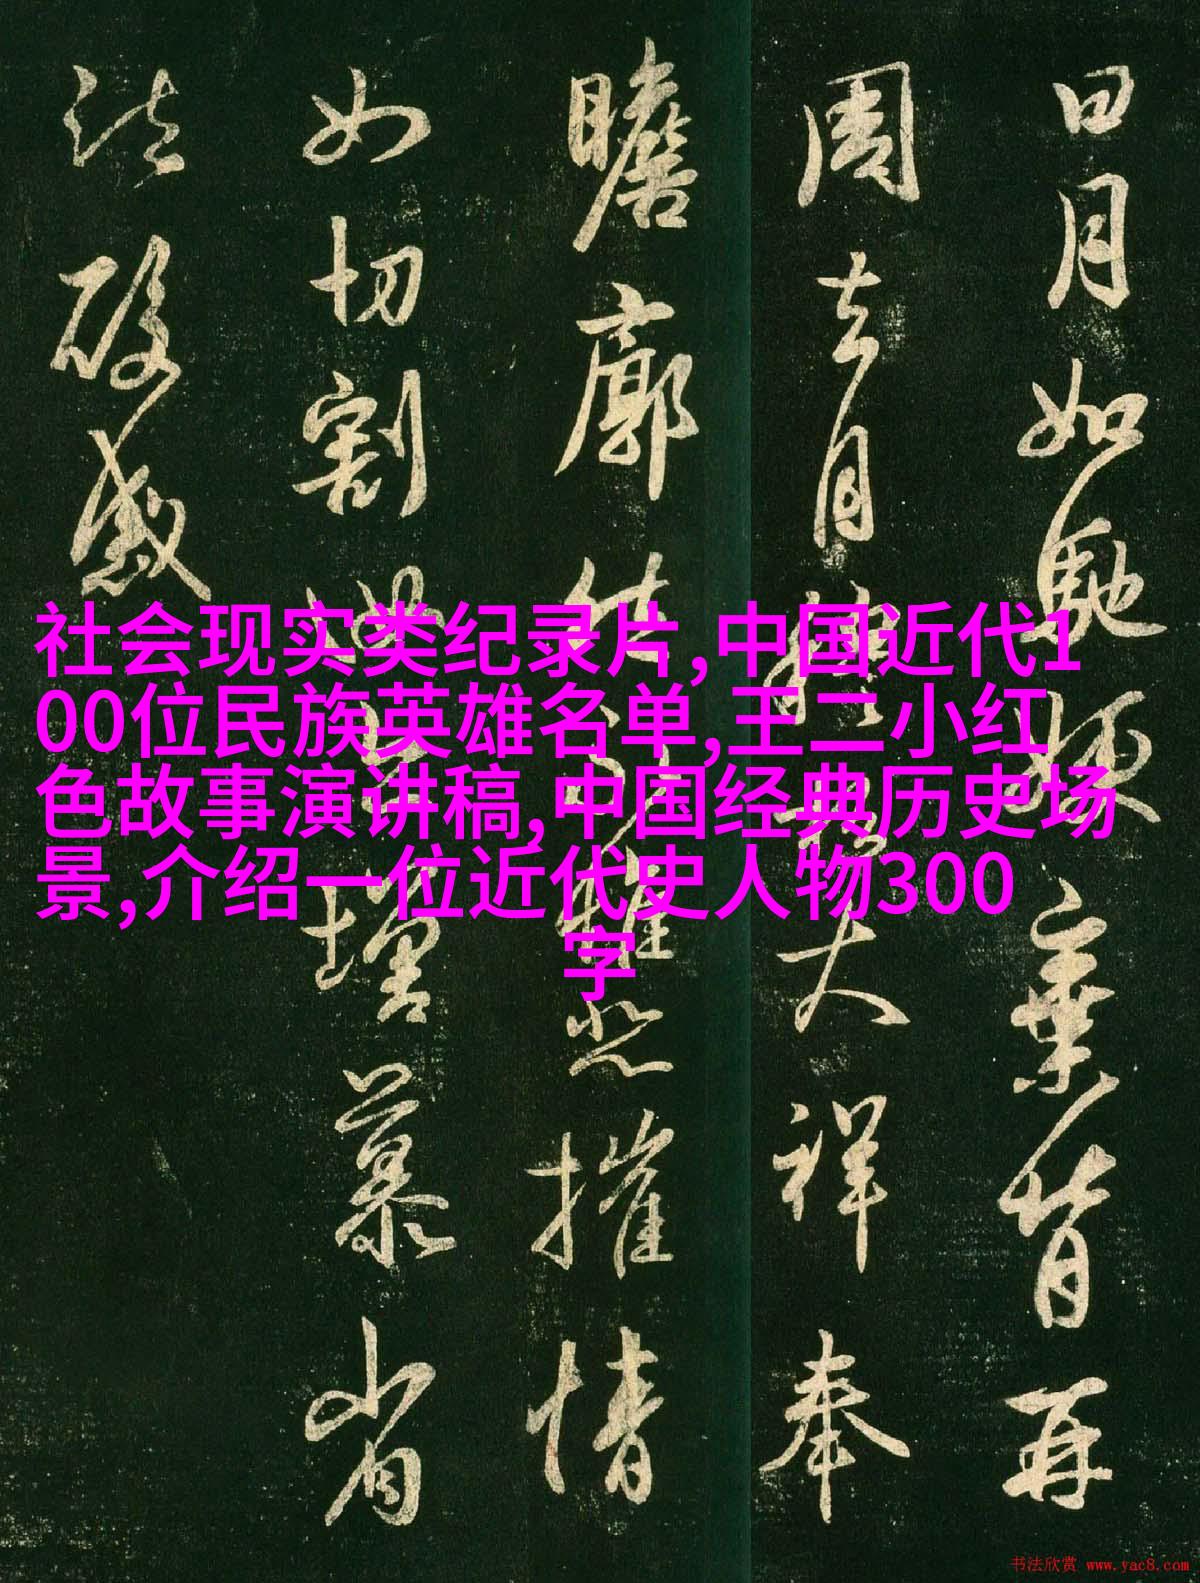 日月如馳嬪棄背再
周去月大祥奉
瞻廓悲摧情
如切割增慕省
酸感
社会现实类纪录片,中国近代1
00位民族英雄名单,王二小红
色故事演讲稿,中国经典历史场
景,介绍一位近代史人物300
字
书法欣赏 www.yac8.com